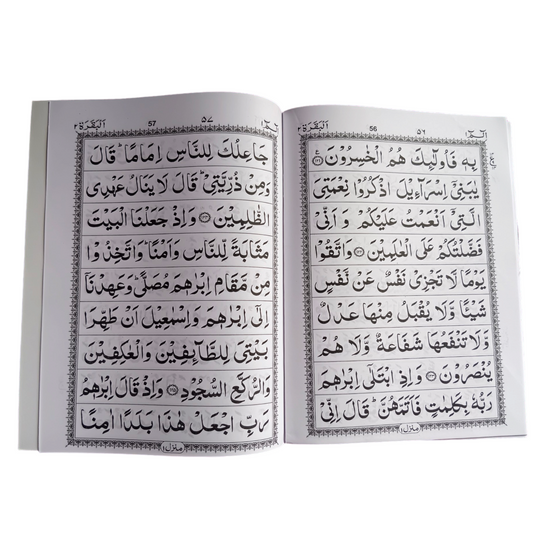 الٓمّٓ ١
٥٦
56
اَلْبَقَرَة ٢
بِهٖ فَاُولٰٓئِكَ هُمُ الْخٰسِرُوْنَ
يٰبَنِيْٓ اِسْرَآءِيْلَ اذْكُرُوْا نِعْمَتِيَ
الَّتِيْٓ اَنْعَمْتُ عَلَيْكُمْ وَ اَنِّيْ
فَضَّلْتُكُمْ عَلَى الْعٰلَمِيْنَ وَاتَّقُوْا
يَوْمًا لَّا تَجْزِيْ نَفْسٌ عَنْ نَّفْسٍ
شَيْـًٔا وَّلَا يُقْبَلُ مِنْهَا عَدْلٌ
وَّلَا تَنْفَعُهَا شَفَاعَةٌ وَّلَا هُمْ
يُنْصَرُوْنَ وَاِذِ ابْتَلٰٓى اِبْرٰهٖمَ
رَبُّهٗ بِكَلِمٰتٍ فَاَتَمَّهُنَّ قَالَ اِنِّيْ
منزل ١
الٓمّٓ ١
٥٧
57
اَلْبَقَرَة ٢
جَاعِلُكَ لِلنَّاسِ اِمَامًا قَالَ
وَمِنْ ذُرِّيَّتِيْ قَالَ لَا يَنَالُ عَهْدِي
الظّٰلِمِيْنَ وَاِذْ جَعَلْنَا الْبَيْتَ
مَثَابَةً لِّلنَّاسِ وَاَمْنًا وَاتَّخِذُوْا
مِنْ مَّقَامِ اِبْرٰهٖمَ مُصَلًّى وَعَهِدْنَآ
اِلٰٓى اِبْرٰهٖمَ وَاِسْمٰعِيْلَ اَنْ طَهِّرَا
بَيْتِيَ لِلطَّآئِفِيْنَ وَالْعٰكِفِيْنَ
وَالرُّكَّعِ السُّجُوْدِ وَاِذْ قَالَ اِبْرٰهٖمُ
رَبِّ اجْعَلْ هٰذَا بَلَدًا اٰمِنًا
منزل ١